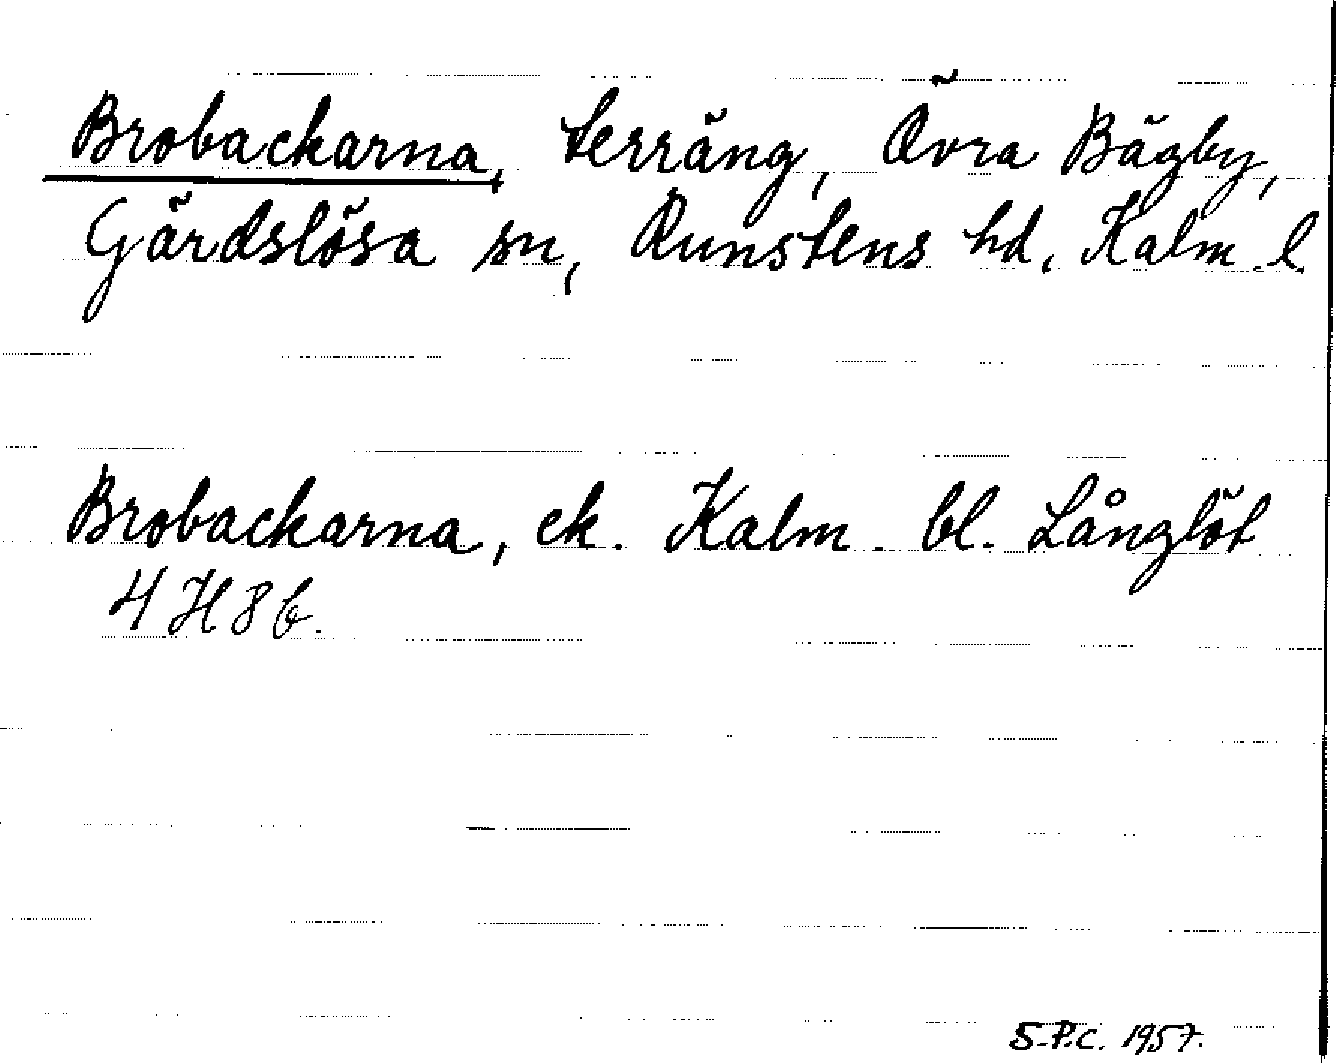 Brobackarna, terräng, Övra Bägby,
Gärdslösa sn, Runstens hd, Kalm. l.
Brobackarna, ek. Kalm. bl. Långlöt
4 H 8 b.
S-P.C. 1957.